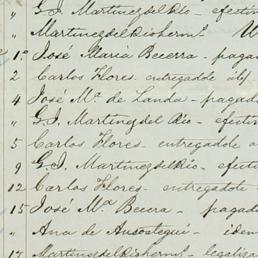 " G. I. Martinez del Rio - efectiv
" Martinez del Rio herms.
1° José Maria Becerra - paga
2 Carlos Flores - entregadole
4 José Ma. de Landa - pagado
" G. I. Martinez del Rio - efecti
5 Carlos Flores - entregadole a
9 G. I. Martinez del Rio - efect
12 Carlos Flores - entregadole
15 José Ma. Becera - pagado
" Ana de Ausostegui - iden
17 Martinez del Rio herms. - legaliza